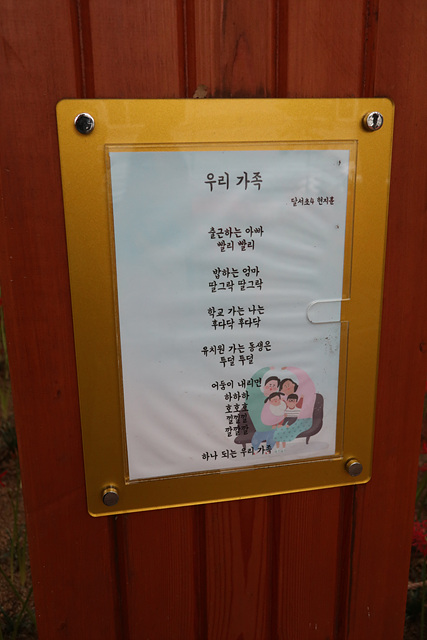 우리 가족
달서초4 현지훈
출근하는 아빠
빨리 빨리
밥하는 엄마
딸그락 딸그락
학교 가는 나는
후다닥 후다닥
유치원 가는 동생은
투덜 투덜
어둠이 내리면
하하하
호호호
낄낄낄
깔깔깔
하나 되는 우리 가족